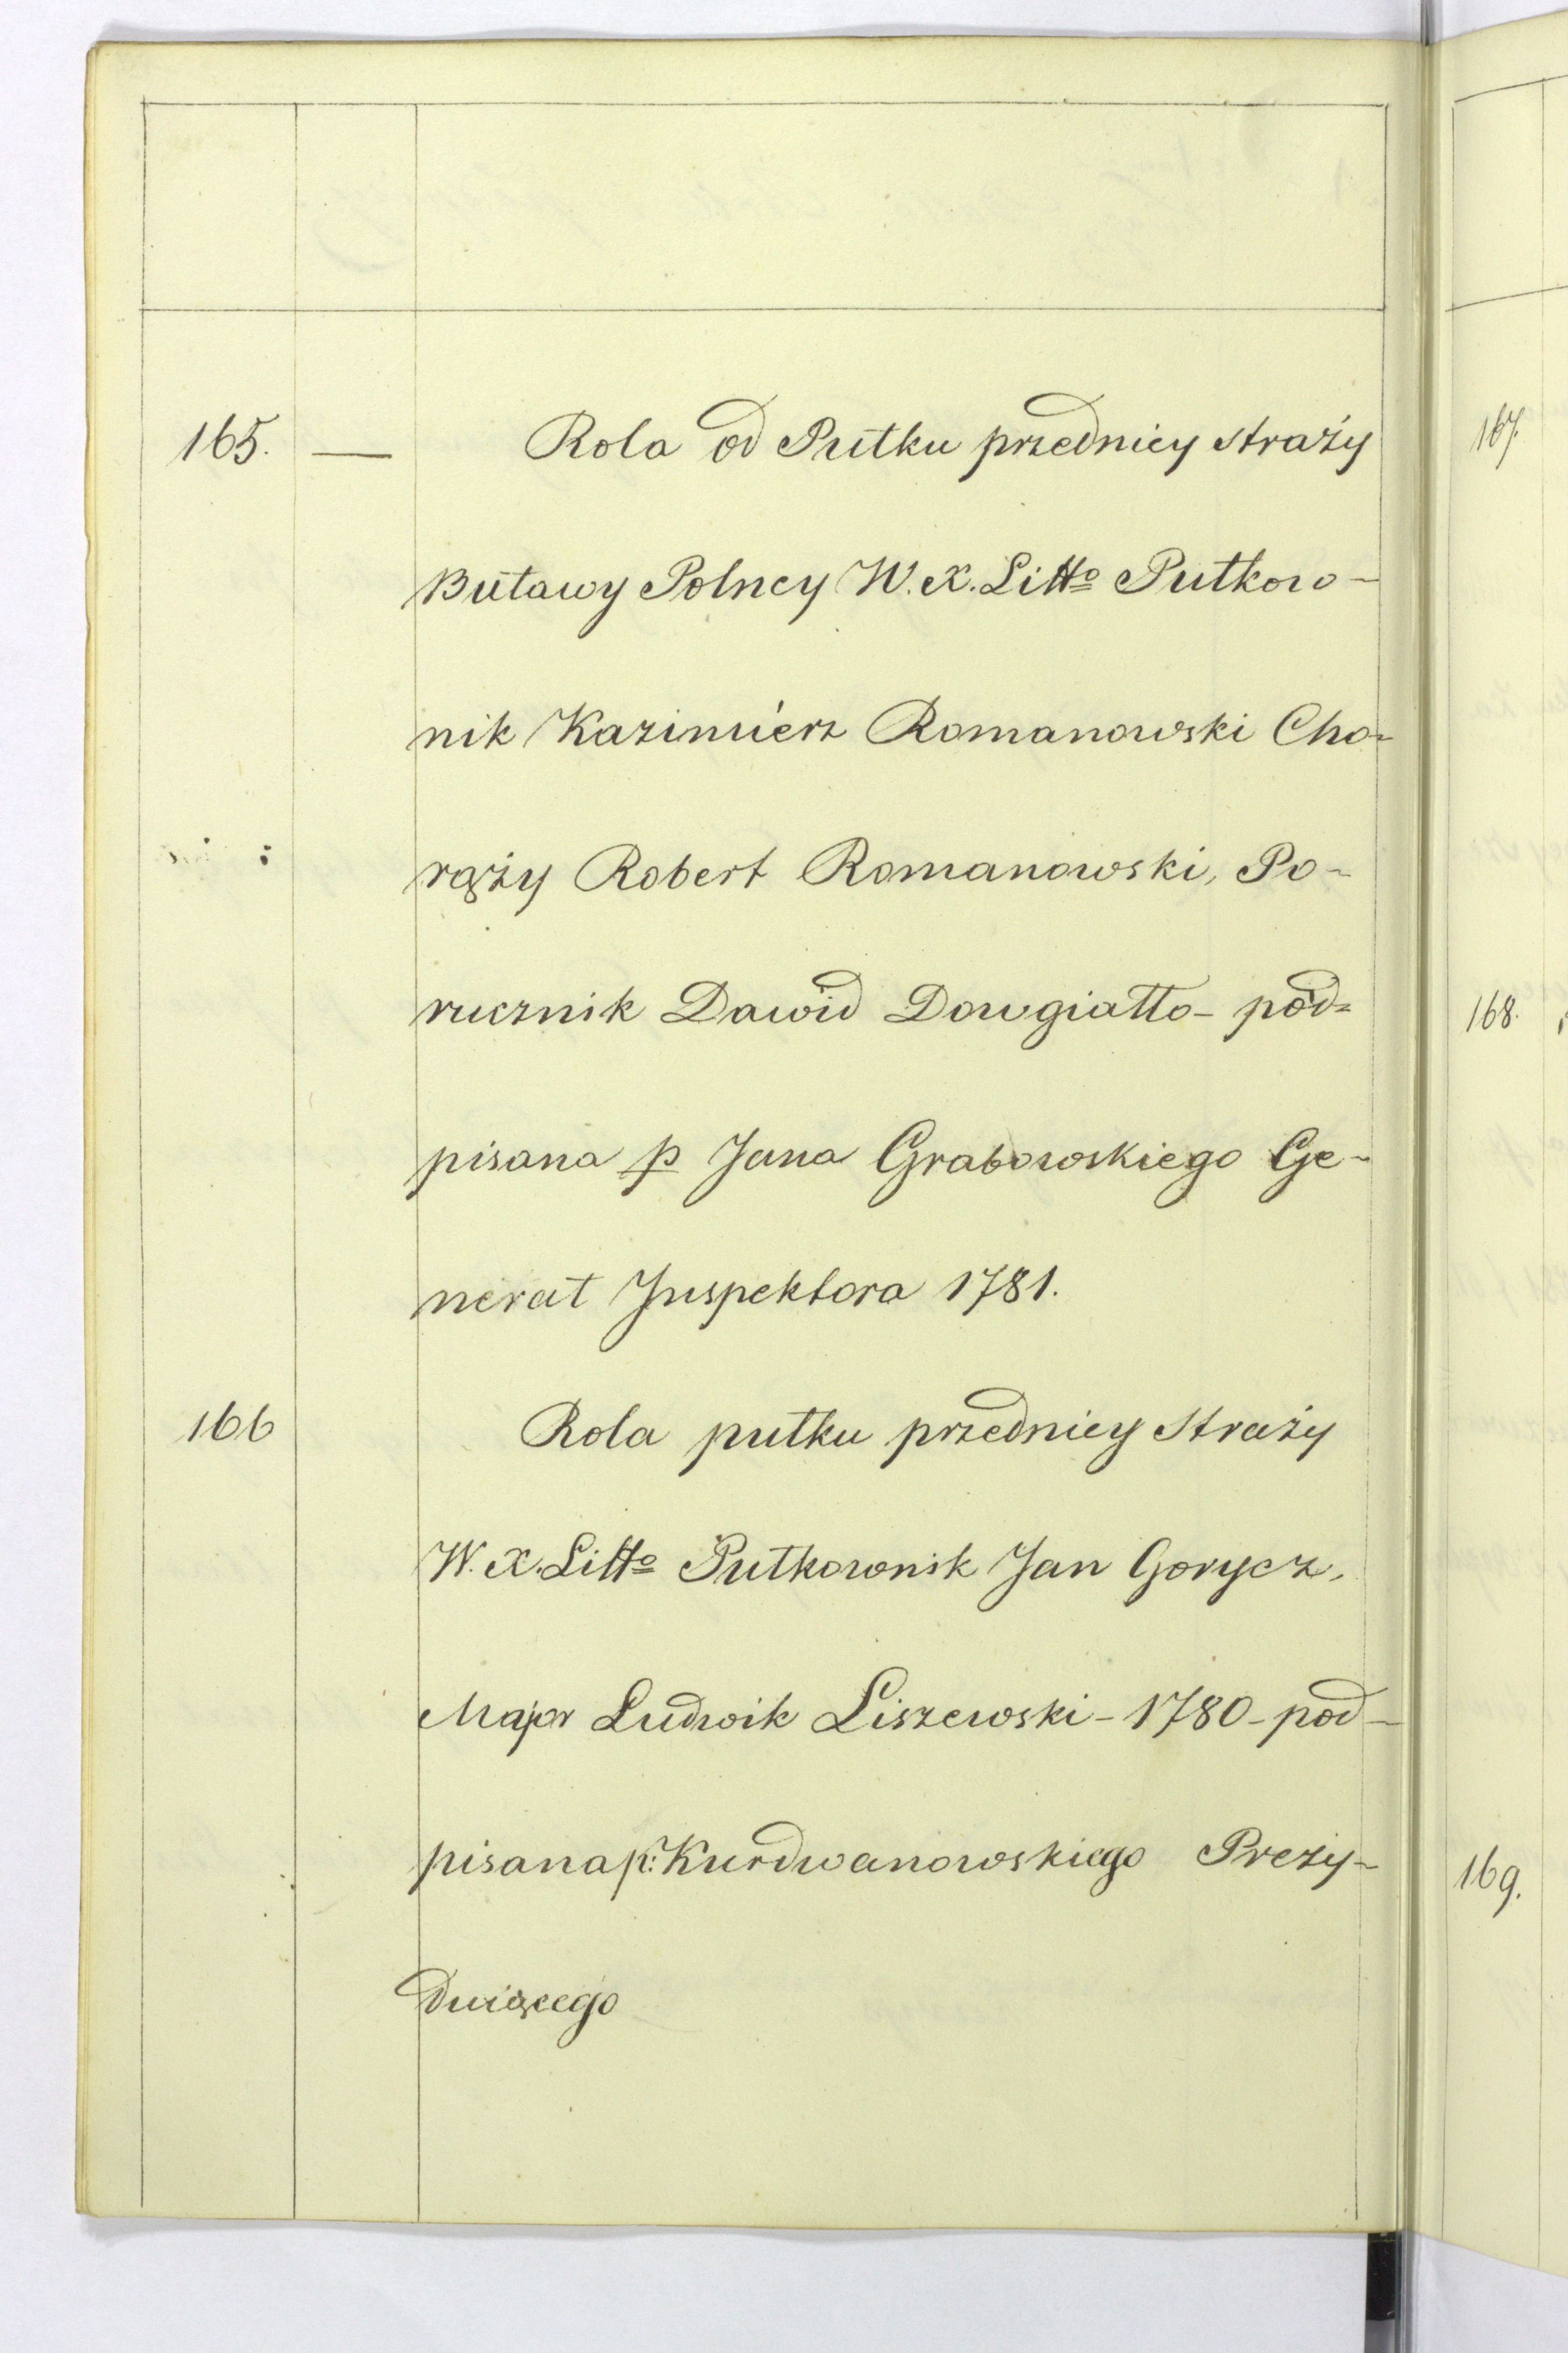 165. — Rola od Pułku przedniey straży
Buławy Polney W. X. Litto Pułkow-
nik Kazimierz Romanowski Cho-
rąży Robert Romanowski, Po-
rucznik Dawid Dowgiałło - pod=
pisana p Jana Grabowskiego Ge-
nerał Inspektora 1781.
166 Rola pułku przedniey Straży
W. X. Litto Pułkownik Jan Gorycz,
Major Ludwik Liszewski - 1780 - pod-
pisana p: Kurdwanowskiego Prezy-
duiącego
167.
168.
169.